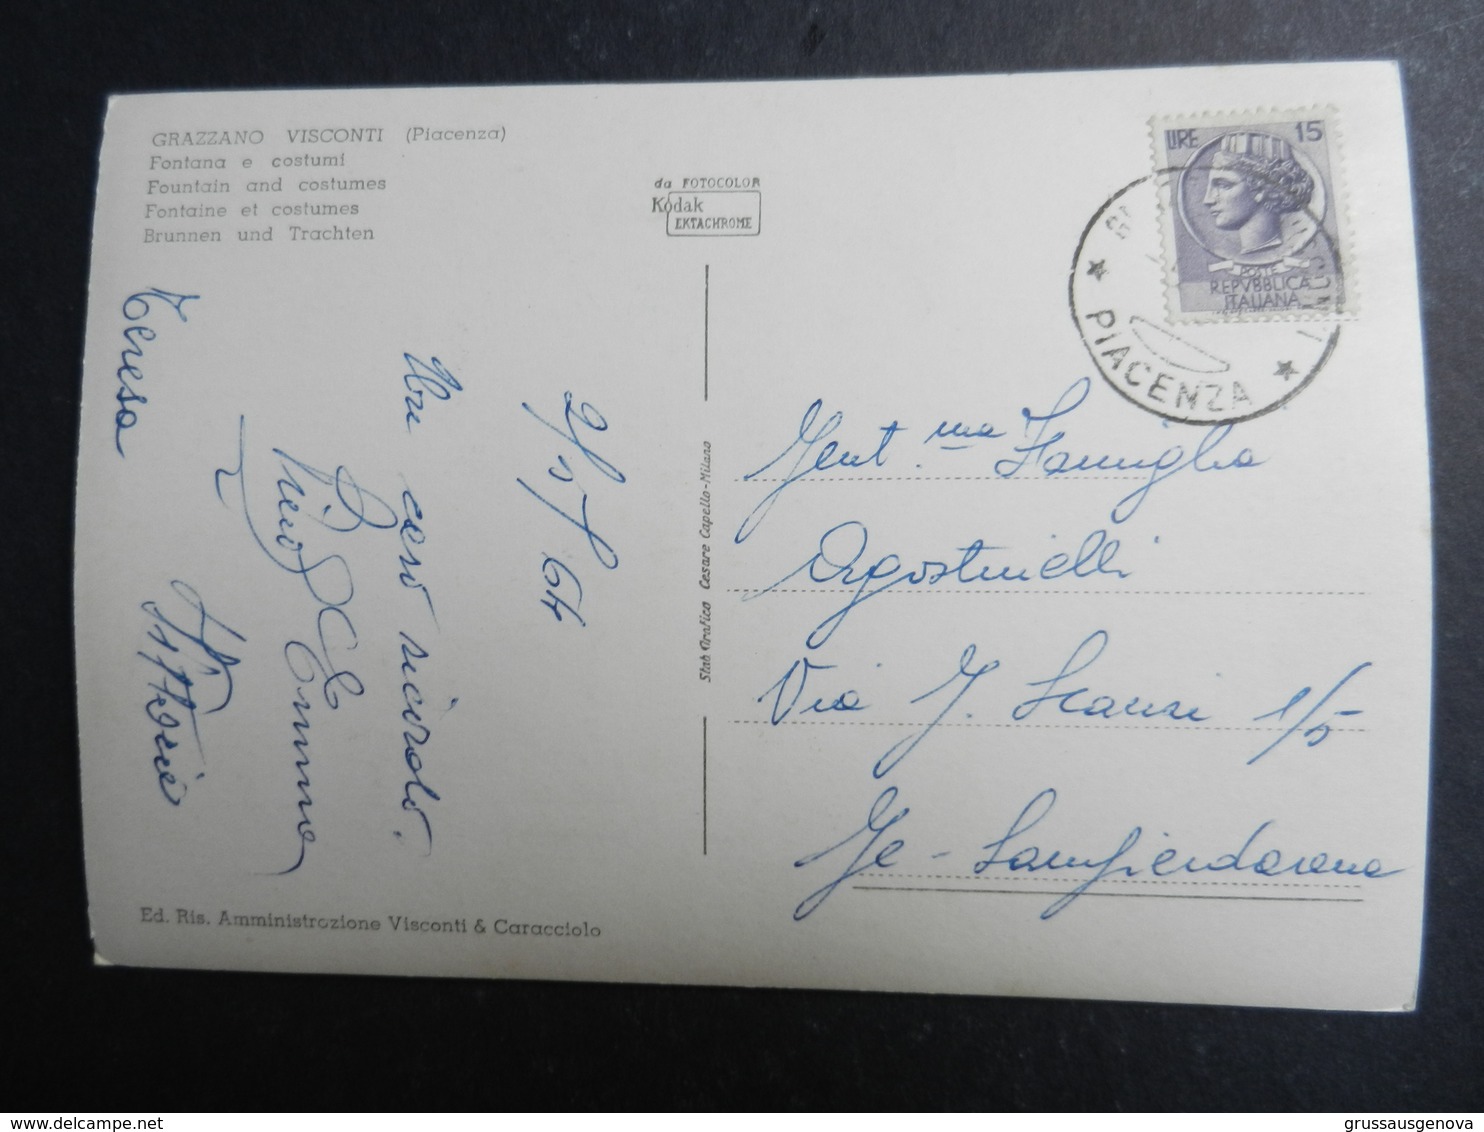 GRAZZANO VISCONTI (Piacenza)
Fontana e costumi
Fountain and costumes
Fontaine et costumes
Brunnen und Trachten
da FOTOCOLOR
Kodak
EKTACHROME
LIRE 15
POSTE
REPVBBLICA
ITALIANA
VISCONTI
PIACENZA
2/5/64
Un caro ricordo.
Piero Emma
Teresa
Stab. Grafico Cesare Capello-Milano
Gent.ma Famiglia
Agostinelli
Via G. Scarsi 1/5
Ge - Sampierdarena
Ed. Ris. Amministrazione Visconti & Caracciolo
delcampe.net
grussausgenova